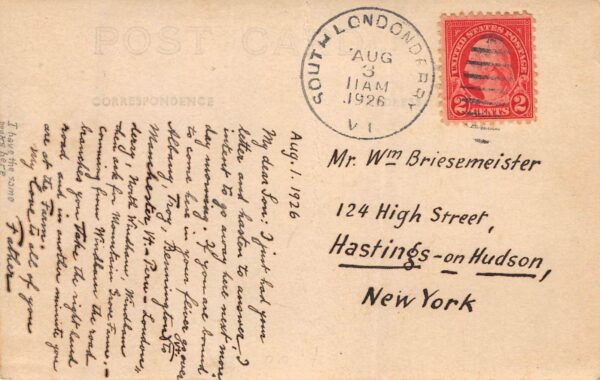 POST CARD
CORRESPONDENCE
SOUTH LONDONDERRY
AUG
3
11AM
1926
VT.
UNITED STATES POSTAGE
2 CENTS 2
Mr. Wm Briesemeister
124 High Street,
Hastings-on Hudson,
New York
Aug. 1. 1926
My dear Son: I just had your
letter and hasten to answer. I
intent to go away here next mon-
day morning. If you are bound
to come here in your fliver go over
Albany, Troy, Bennington to
Manchester, Vt. - Peru - Londons,
derry, North Windham, Windham
then ask for Mountain Grove Farm. -
Comming from Windham the road
branches you take the right hand
road and in another minute you
are at the Farm.
My Love to all of you
Father
I have the same
here